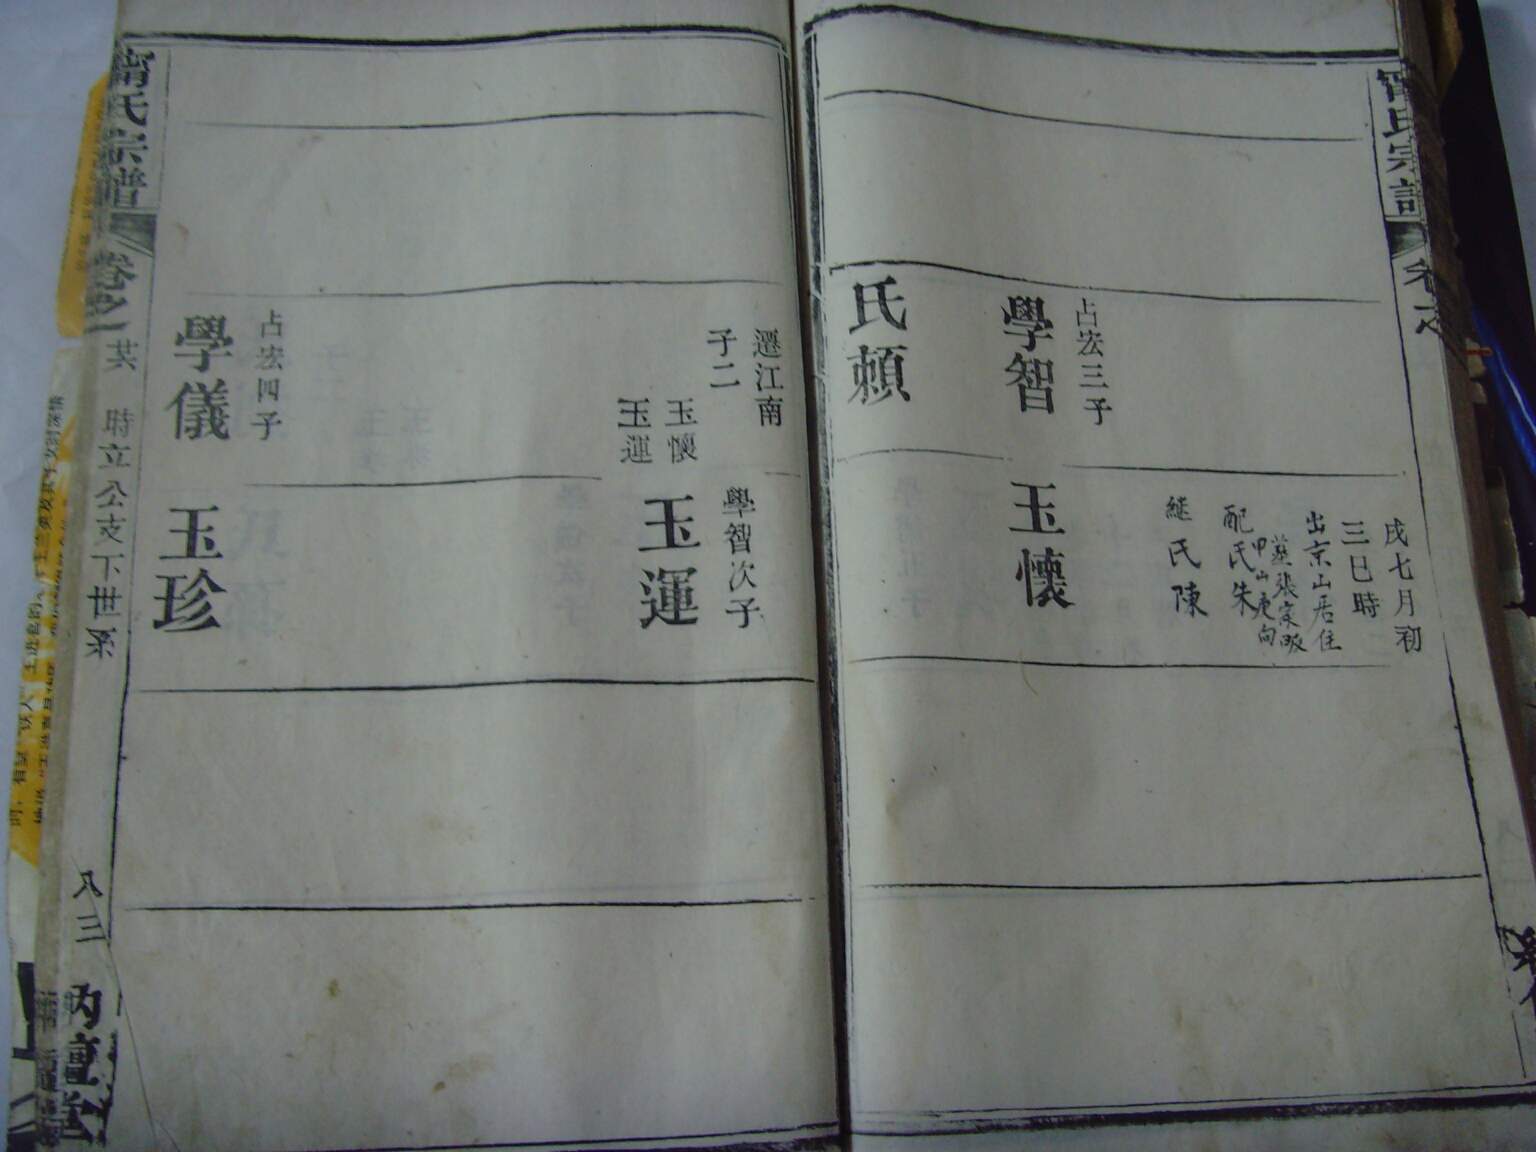 甯氏宗譜
卷之
戌七月初
三巳時
出京山居住
配氏朱
継氏陳
占宏三子
學智
玉懷
氏賴
遷江南
子二
玉懷
玉運
學智次子
玉運
占宏四子
學儀
玉珍
甯氏宗譜
卷之一
其
時立公支下世系
八三